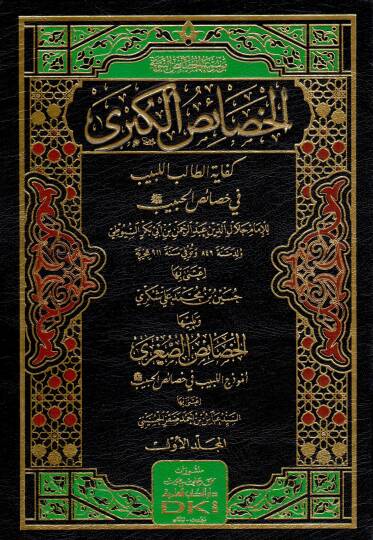 الخصائص الكبرى
كفاية الطالب اللبيب
في خصائص الحبيب ﷺ
للإمام جلال الدين عبد الرحمن بن أبي بكر السيوطي
ولد سنة ٨٤٩ وتوفي سنة ٩١١ هجرية
اعتنى بها
حسين بن محمد علي شكري
ويليها
الخصائص الصغرى
أنموذج اللبيب في خصائص الحبيب ﷺ
اعتنى بها
السيد عباس بن أحمد صقر الحسيني
المجلد الأول
منشورات
محمد علي بيضون
دار الكتب العلمية
DKi
بيروت - لبنان